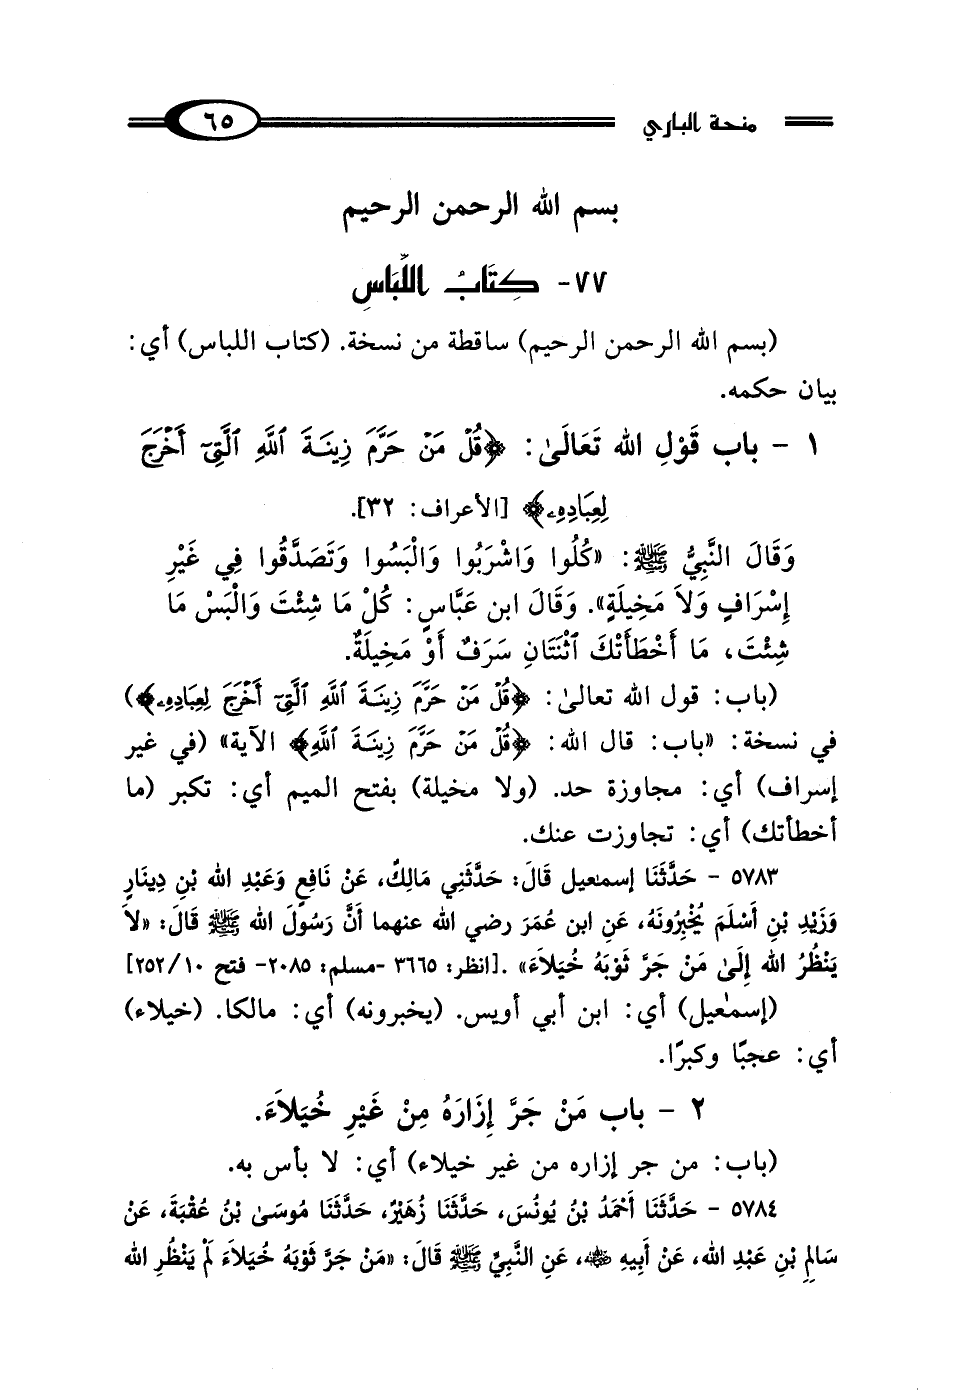 منحة الباري ٦٥
بسم الله الرحمن الرحيم
٧٧- كِتَابُ اللِّبَاسِ
(بسم الله الرحمن الرحيم) ساقطة من نسخة. (كتاب اللباس) أي:
بيان حكمه.
١ - باب قَوْلِ الله تَعَالَىٰ: ﴿قُلْ مَنْ حَرَّمَ زِينَةَ ٱللَّهِ ٱلَّتِيٓ أَخْرَجَ
لِعِبَادِهِۦ﴾ [الأعراف: ٣٢].
وَقَالَ النَّبِيُّ ﷺ: «كُلُوا وَاشْرَبُوا وَالْبَسُوا وَتَصَدَّقُوا فِي غَيْرِ
إِسْرَافٍ وَلاَ مَخِيلَةٍ». وَقَالَ ابن عَبَّاسٍ: كُلْ مَا شِئْتَ وَالْبَسْ مَا
شِئْتَ، مَا أَخْطَأَتْكَ ٱثْنَتَانِ سَرَفٌ أَوْ مَخِيلَةٌ.
(باب: قول الله تعالىٰ: ﴿قُلْ مَنْ حَرَّمَ زِينَةَ ٱللَّهِ ٱلَّتِيٓ أَخْرَجَ لِعِبَادِهِۦ﴾)
في نسخة: «باب: قال الله: ﴿قُلْ مَنْ حَرَّمَ زِينَةَ ٱللَّهِ﴾ الآية» (في غير
إسراف) أي: مجاوزة حد. (ولا مخيلة) بفتح الميم أي: تكبر (ما
أخطأتك) أي: تجاوزت عنك.
٥٧٨٣ - حَدَّثَنَا إسمٰعيل قَالَ: حَدَّثَنِي مَالِكٌ، عَنْ نَافِعٍ وَعَبْدِ الله بْنِ دِينَارٍ
وَزَيْدِ بْنِ أَسْلَمَ يُخْبِرُونَهُ، عَنِ ابن عُمَرَ رضي الله عنهما أَنَّ رَسُولَ الله ﷺ قَالَ: «لاَ
يَنْظُرُ الله إِلَىٰ مَنْ جَرَّ ثَوْبَهُ خُيَلاَءَ» .[انظر: ٣٦٦٥ -مسلم: ٢٠٨٥- فتح ١٠/٢٥٢]
(إسمٰعيل) أي: ابن أبي أويس. (يخبرونه) أي: مالكا. (خيلاء)
أي: عجبًا وكبرًا.
٢ - باب مَنْ جَرَّ إِزَارَهُ مِنْ غَيْرِ خُيَلاَءَ.
(باب: من جر إزاره من غير خيلاء) أي: لا بأس به.
٥٧٨٤ - حَدَّثَنَا أَحْمَدُ بْنُ يُونُسَ، حَدَّثَنَا زُهَيْرٌ، حَدَّثَنَا مُوسَىٰ بْنُ عُقْبَةَ، عَنْ
سَالِمِ بْنِ عَبْدِ الله، عَنْ أَبِيهِ ﵁، عَنِ النَّبِيِّ ﷺ قَالَ: «مَنْ جَرَّ ثَوْبَهُ خُيَلاَءَ لَمْ يَنْظُرِ الله